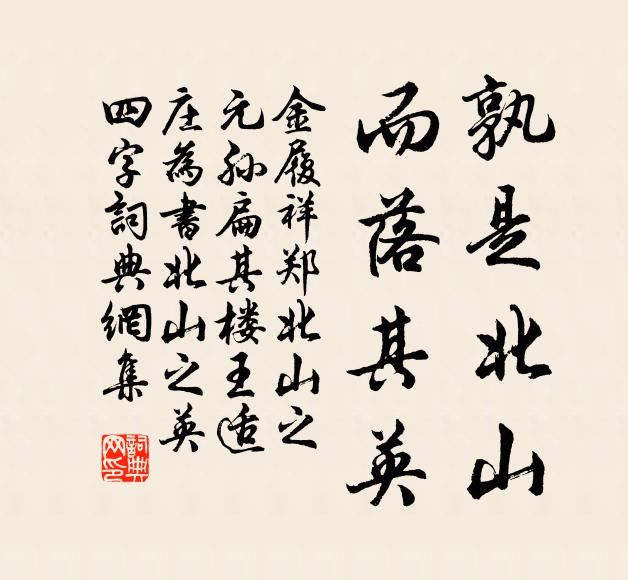 孰是北山
而落其英
金履祥郑北山之
元孙扁其楼王适
庄為書北山之英
四字詞典網集
詞典
网印